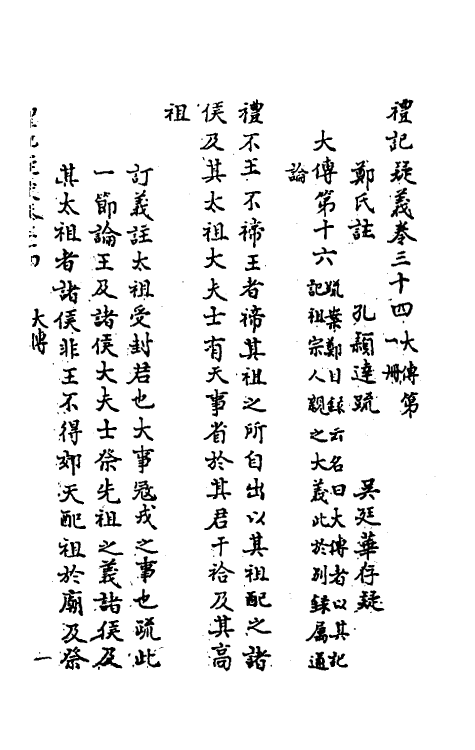 禮記疑義卷三十四 大傳第一册
鄭氏註 孔穎達疏 吳廷華存疑
大傳第十六 疏案鄭目錄云名曰大傳者以其記祖宗人親之大義此於別錄屬通
論
禮不王不禘王者禘其祖之所自出以其祖配之諸
侯及其太祖大夫士有天事省於其君干祫及其高
祖
訂義註太祖受封君也大事冦戎之事也疏此
一節論王及諸侯大夫士祭先祖之義諸侯及
其太祖者諸侯非王不得郊天配祖於廟及祭
大傳
一